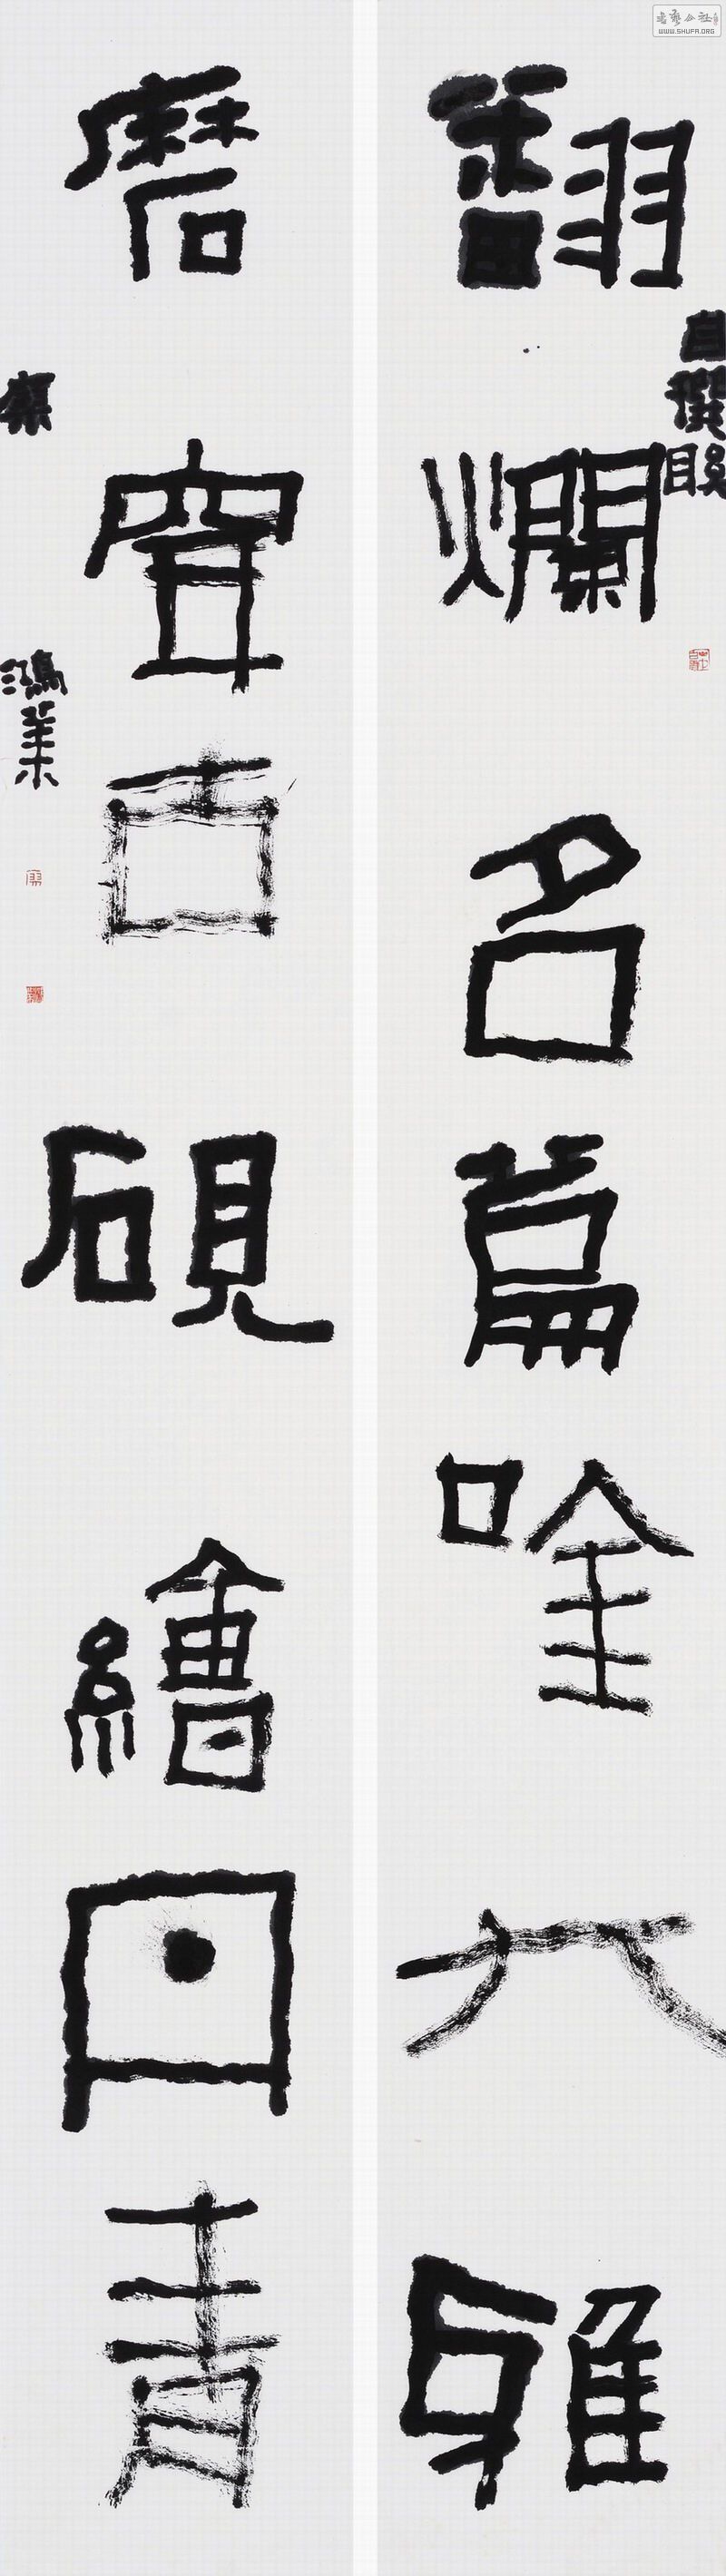 翻爛名篇唫大雅
自撰聯
磨穿古硯繪丹青
鴻業
WWW.SHUFA.ORG